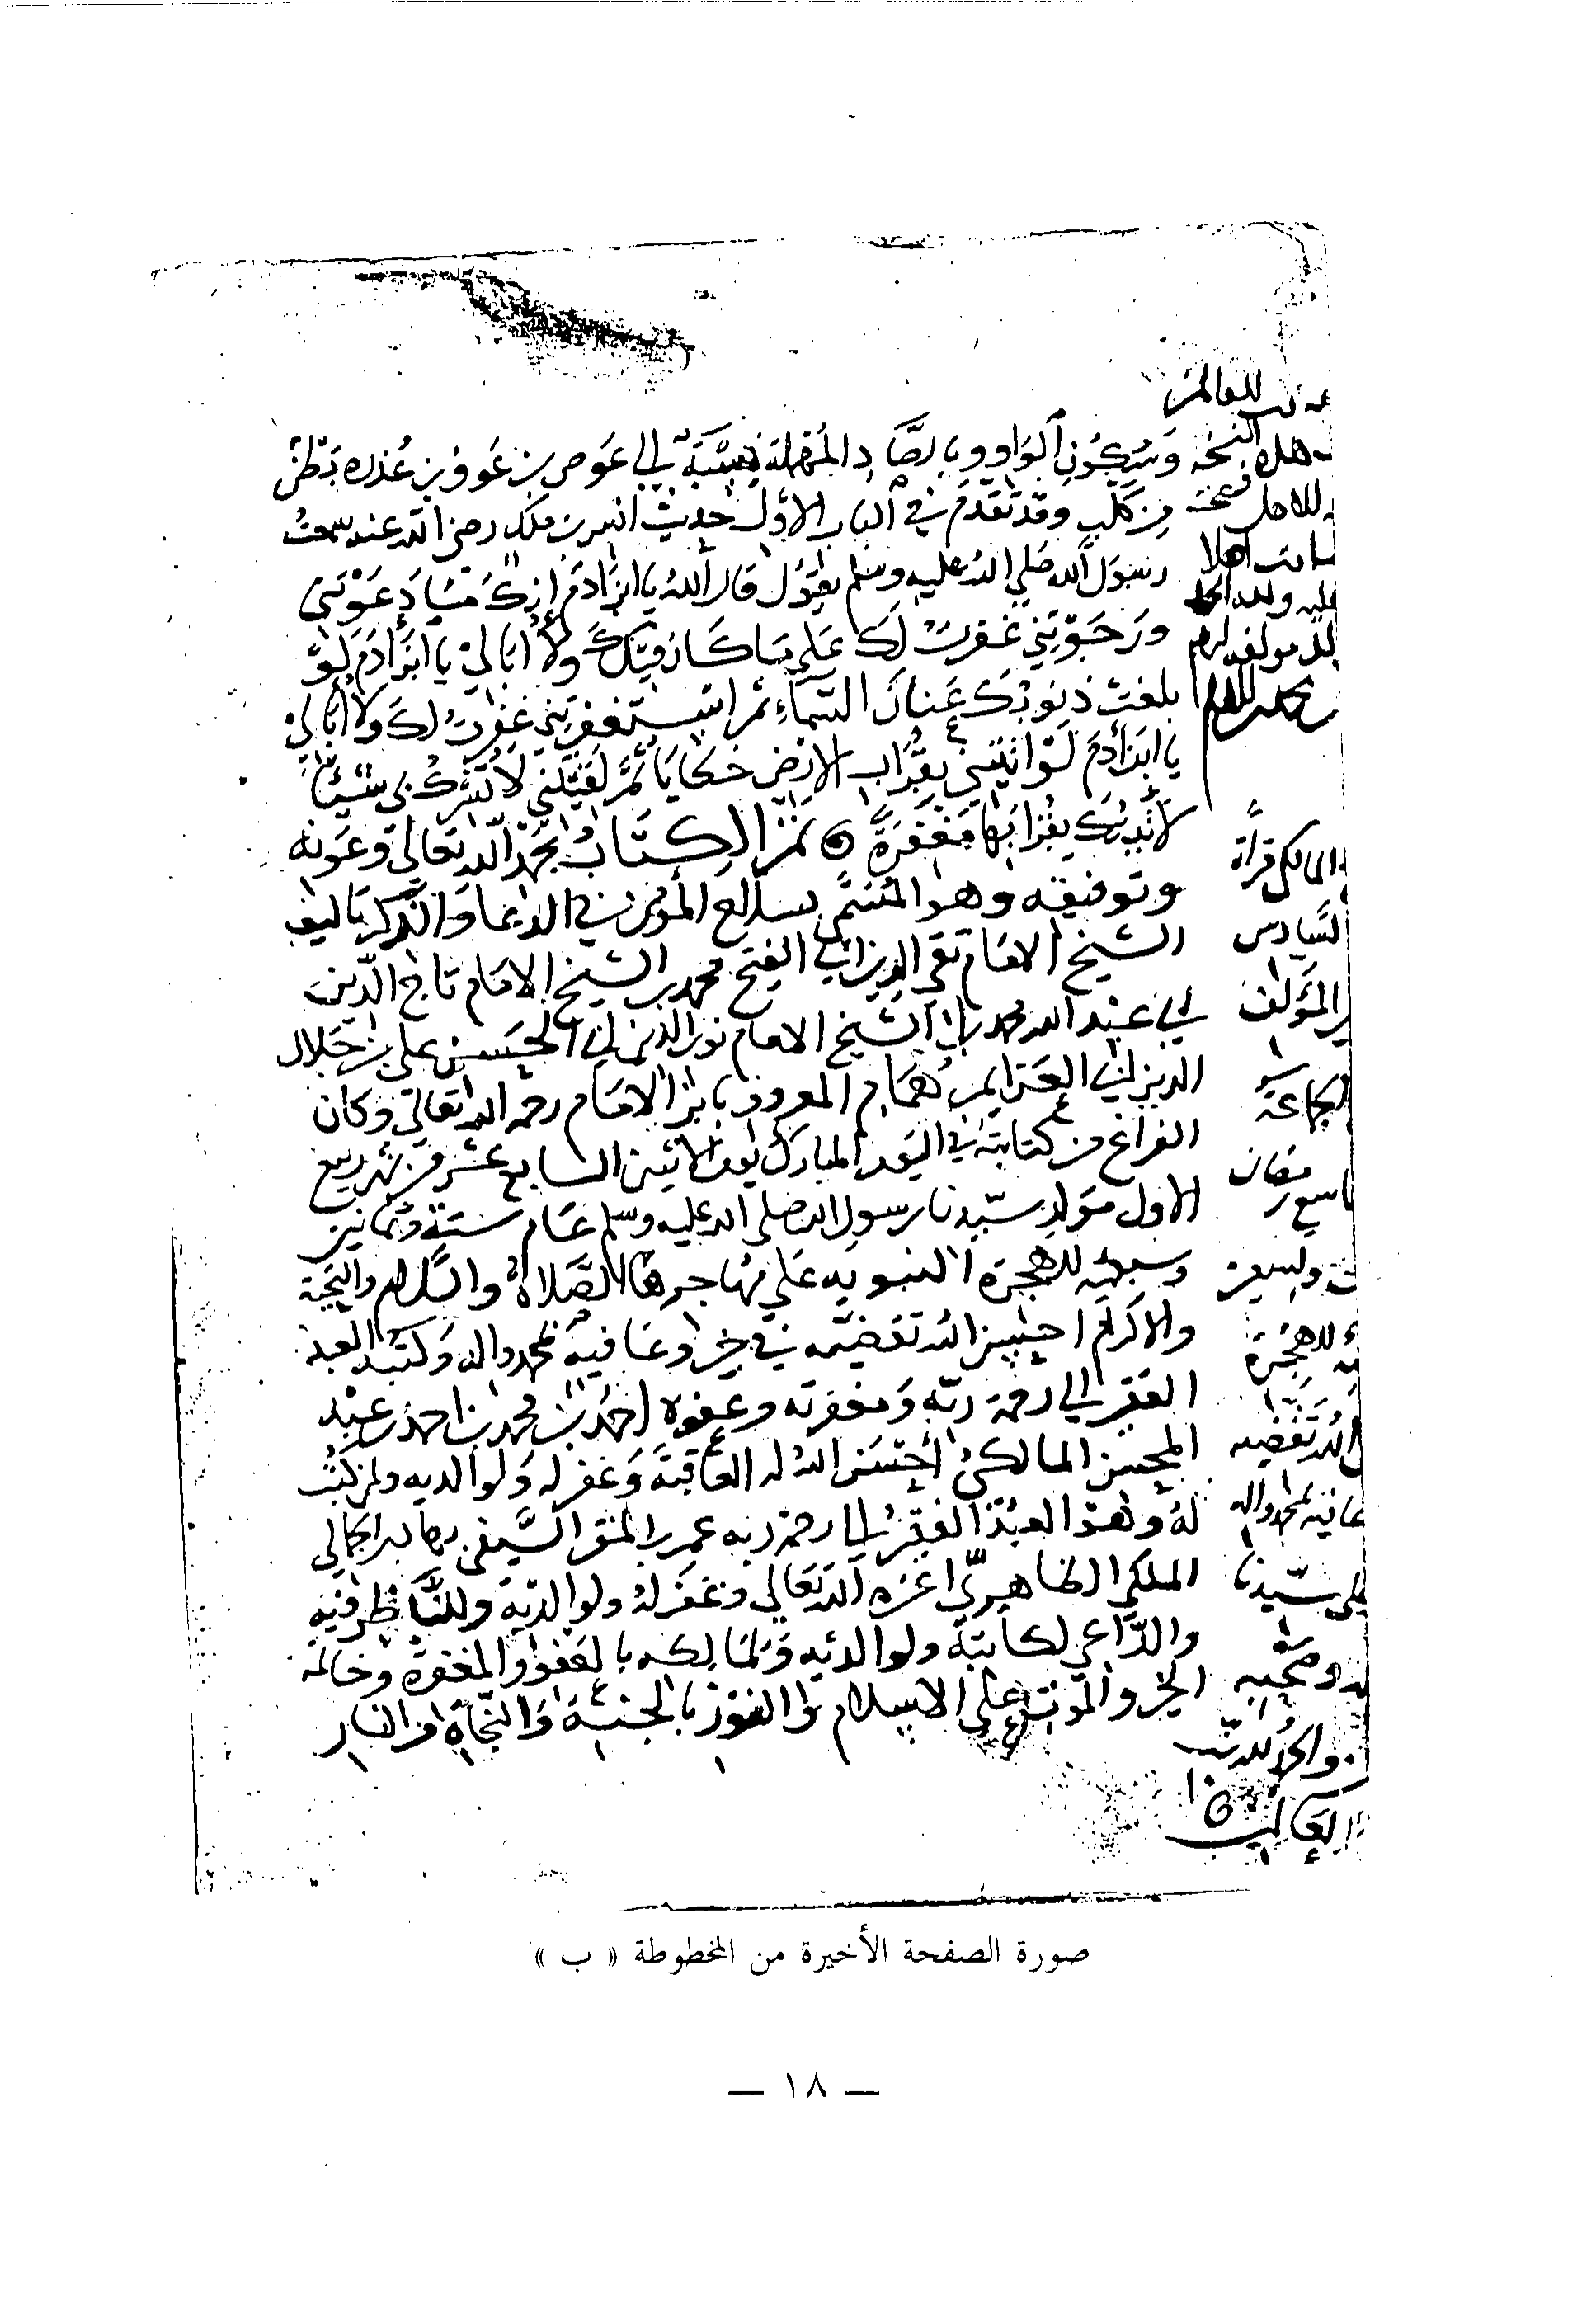 وسكون الواو وبالصاد المهملة نسبة الى عوص بن عوف بن عذره بطن
من كلب وقد تقدم في الباب الأول حديث انس بن ملك رضي الله عنه سمعت
رسول الله صلى الله عليه وسلم يقول قال الله يا ابن ادم إنك ما دعوتني
ورجوتني غفرت لك على ما كان منك ولا أبالي يا ابن ادم لو
بلغت ذنوبك عنان السماء ثم استغفرتني غفرت لك ولا أبالي
يا ابن أدم لو اتيتني بقراب الارض خطايا ثم لقيتني لا تشرك بي شيئا
لأتيتك بقرابها مغفرة تم الكتاب بحمد الله تعالى وعونه
وتوفيقه وهو المسمى بسلاح المؤمن في الدعا والذكر تاليف
الشيخ الامام تقي الدين ابي الفتح محمد بن الشيخ الامام تاج الدين
ابي عبد الله محمد بن الشيخ الامام نور الدين ابي الحسن علي بن جلال
الدين ابي العزايم همام المعروف بابن الامام رحمه الله تعالى وكان
الفراغ من كتابته في اليوم المبارك يوم الاثنين السابع عشر من شهر ربيع
الاول مولد سيدنا رسول الله صلى الله عليه وسلم عام ستة وثمانين
وسبعمايه للهجرة النبويه على مهاجرها الصلاة والسلام والتحية
والاكرام احسن الله تقضيه في خير وعافية بمحمد واله وكتبه العبد
الفقير الى رحمة ربه ومغفرته وعفوه احمد بن محمد بن احمد بن عبد
المحسن المالكي أحسن الله له العاقبة وغفر له ولوالديه ولمن كتبت
له وهو العبد الفقير الى رحمة ربه عمر بن السيفي الجمالي
الملكي الظاهري اعزه الله تعالى وغفر له ولوالديه وللناظر فيه
والداعي لكاتبه ولوالديه ولمالكه بالعفو والمغفرة وخاتمة
الخير والموت على الاسلام والفوز بالجنة والنجاة من النار
للعالم
هذه النسخه
المالكي قرأة
السادس
المؤلف
الجماعة
رمضان
وتسعين
للهجرة
الله تقضيه
عافيه بمحمد واله
على سيدنا
وصحبه
والحمد لله رب
العالمين
صورة الصفحة الأخيرة من المخطوطة « ب »
— ١٨ —